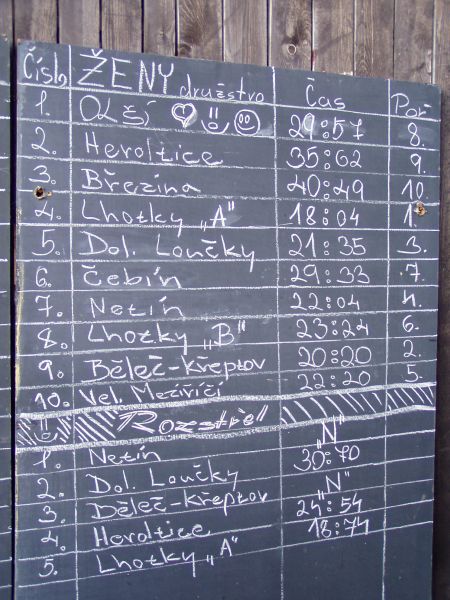 Číslo ŽENY družstvo Čas Poř
1. Olší 29:57 8.
2. Heroltice 35:62 9.
3. Březina 40:49 10.
4. Lhotky „A" 18:04 1.
5. Dol. Loučky 21:35 3.
6. Čebín 29:33 7.
7. Netín 22:04 4.
8. Lhotky „B" 23:24 6.
9. Běleč-Křeptov 20:20 2.
10. Vel. Meziříčí 22:20 5.
Rozstřel
1. Netín „N"
2. Dol. Loučky 30:70
3. Běleč-Křeptov „N"
4. Heroltice 24:54
5. Lhotky „A" 18:74